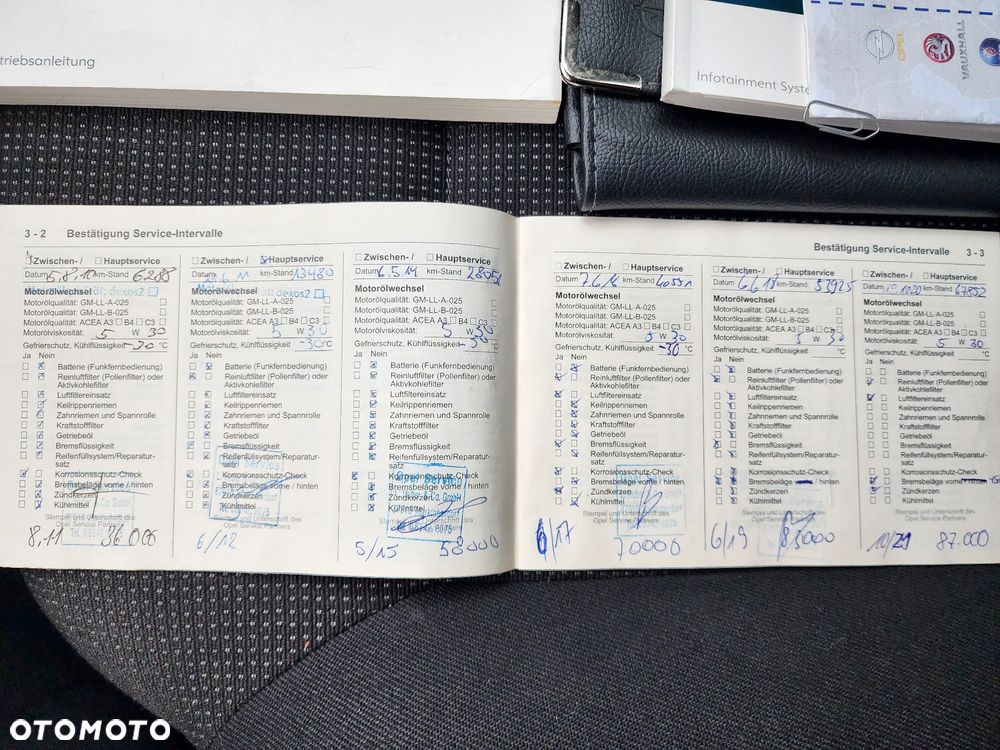 triebsanleitung
Infotainment Syste
OPEL
VAUXHALL
3 - 2 Bestätigung Service-Intervalle
Zwischen- / Hauptservice
Datum 5.8.10 km-Stand 6288
Motorölwechsel
Motorölqualität: GM-LL-A-025
GM-LL-B-025
Motorölqualität: ACEA A3 B4 C3
Motorölviskosität: 5 W 30
Gefrierschutz, Kühlflüssigkeit -30 °C
Ja Nein
Batterie (Funkfernbedienung)
Reinluftfilter (Pollenfilter) oder
Aktivkohlefilter
Luftfiltereinsatz
Keilrippenriemen
Zahnriemen und Spannrolle
Kraftstofffilter
Getriebeöl
Bremsflüssigkeit
Reifenfüllsystem/Reparatur-
satz
Korrosionsschutz-Check
Bremsbeläge vorne / hinten
Zündkerzen
Kühlmittel
Stempel und Unterschrift des
Opel Service Partners
8.11 36 000
Zwischen- / Hauptservice
Datum km-Stand 13480
Motorölwechsel
dexos2
Motorölqualität: GM-LL-A-025
GM-LL-B-025
Motorölqualität: ACEA A3 B4 C3
Motorölviskosität: 5 W 30
Gefrierschutz, Kühlflüssigkeit -30 °C
Ja Nein
Batterie (Funkfernbedienung)
Reinluftfilter (Pollenfilter) oder
Aktivkohlefilter
Luftfiltereinsatz
Keilrippenriemen
Zahnriemen und Spannrolle
Kraftstofffilter
Getriebeöl
Bremsflüssigkeit
Reifenfüllsystem/Reparatur-
satz
Korrosionsschutz-Check
Bremsbeläge vorne / hinten
Zündkerzen
Kühlmittel
Stempel und Unterschrift des
Opel Service Partners
6/12
Zwischen- / Hauptservice
Datum 6.5.14 km-Stand
Motorölwechsel
Motorölqualität: GM-LL-A-025
GM-LL-B-025
Motorölqualität: ACEA A3 B4 C3
Motorölviskosität: 5 W 30
Gefrierschutz, Kühlflüssigkeit -30 °C
Ja Nein
Batterie (Funkfernbedienung)
Reinluftfilter (Pollenfilter) oder
Aktivkohlefilter
Luftfiltereinsatz
Keilrippenriemen
Zahnriemen und Spannrolle
Kraftstofffilter
Getriebeöl
Bremsflüssigkeit
Reifenfüllsystem/Reparatur-
satz
Korrosionsschutz-Check
Opel Service
Bremsbeläge vorne / hinten
Zündkerzen
Kühlmittel
Stempel und Unterschrift des
Opel Service Partners
5/15 58000
Bestätigung Service-Intervalle 3 - 3
Zwischen- / Hauptservice
Datum 7.6.16 km-Stand
Motorölwechsel
Motorölqualität: GM-LL-A-025
GM-LL-B-025
Motorölqualität: ACEA A3 B4 C3
Motorölviskosität: 5 W 30
Gefrierschutz, Kühlflüssigkeit -30 °C
Ja Nein
Batterie (Funkfernbedienung)
Reinluftfilter (Pollenfilter) oder
Aktivkohlefilter
Luftfiltereinsatz
Keilrippenriemen
Zahnriemen und Spannrolle
Kraftstofffilter
Getriebeöl
Bremsflüssigkeit
Reifenfüllsystem/Reparatur-
satz
Korrosionsschutz-Check
Bremsbeläge vorne / hinten
Zündkerzen
Kühlmittel
Stempel und Unterschrift des
Opel Service Partners
6/17 70000
Zwischen- / Hauptservice
Datum 6.6.18 km-Stand 57925
Motorölwechsel
Motorölqualität: GM-LL-A-025
GM-LL-B-025
Motorölqualität: ACEA A3 B4 C3
Motorölviskosität: 5 W 30
Gefrierschutz, Kühlflüssigkeit °C
Ja Nein
Batterie (Funkfernbedienung)
Reinluftfilter (Pollenfilter) oder
Aktivkohlefilter
Luftfiltereinsatz
Keilrippenriemen
Zahnriemen und Spannrolle
Kraftstofffilter
Getriebeöl
Bremsflüssigkeit
Reifenfüllsystem/Reparatur-
satz
Korrosionsschutz-Check
Bremsbeläge vorne / hinten
Zündkerzen
Kühlmittel
Stempel und Unterschrift des
Opel Service Partners
6/19 83000
Zwischen- / Hauptservice
Datum km-Stand 67852
Motorölwechsel
Motorölqualität: GM-LL-A-025
GM-LL-B-025
Motorölqualität: ACEA A3 B4 C3
Motorölviskosität: 5 W 30
Gefrierschutz, Kühlflüssigkeit °C
Ja Nein
Batterie (Funkfernbedienung)
Reinluftfilter (Pollenfilter) oder
Aktivkohlefilter
Luftfiltereinsatz
Keilrippenriemen
Zahnriemen und Spannrolle
Kraftstofffilter
Getriebeöl
Bremsflüssigkeit
Reifenfüllsystem/Reparatur-
satz
Korrosionsschutz-Check
Bremsbeläge vorne / hinten
Zündkerzen
Kühlmittel
Stempel und Unterschrift des
Opel Service Partners
10/21 87.000
OTOMOTO